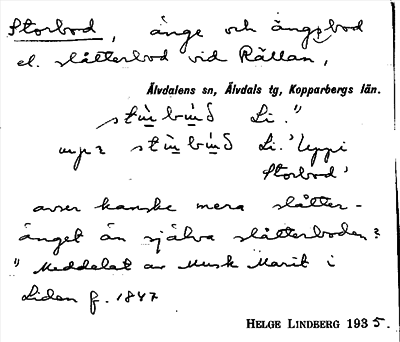 Storbod, änge och ängsbod
el. slåtterbod vid Rällan,
Älvdalens sn, Älvdals tg, Kopparbergs län.
Li. "
Li. 'Uppi
Storbod'
avser kanske mera slåtter-
änget än själva slåtterboden?
") Meddelat av Musk Marit i
Liden f. 1847
HELGE LINDBERG 1935.